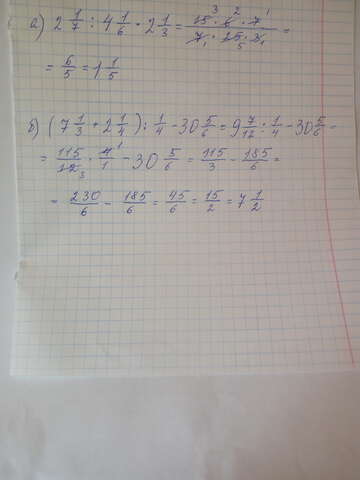 а) 2 1/7 : 4 1/6 · 2 1/3 = (15 · 6 · 7)/(7 · 25 · 3) =
= 6/5 = 1 1/5
б) (7 1/3 + 2 1/4) : 1/4 - 30 5/6 = 9 7/12 : 1/4 - 30 5/6 =
= 115/12 · 4/1 - 30 5/6 = 115/3 - 185/6 =
= 230/6 - 185/6 = 45/6 = 15/2 = 7 1/2